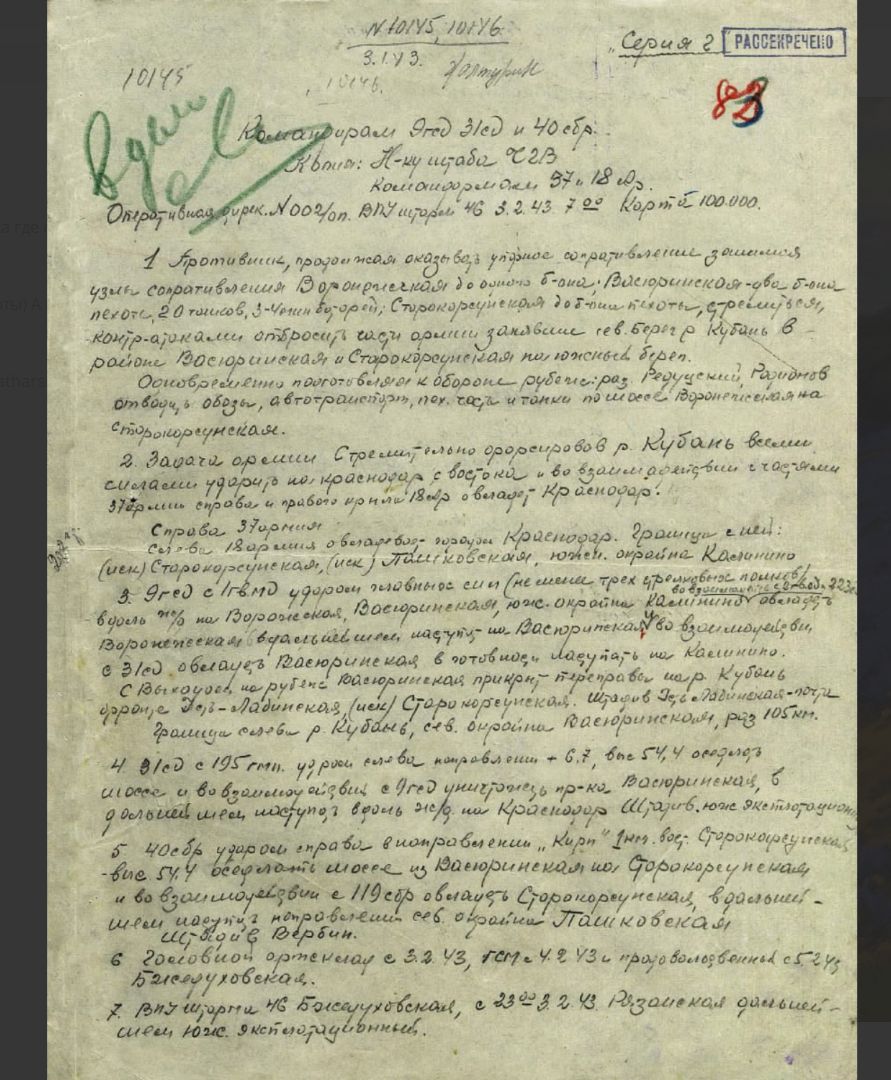 N 10145, 10146.
3.1.43.
"Серия 2"
РАССЕКРЕЧЕНО
10145
10146.
83
Командирам 9гсд 31сд и 40сбр.
Копия: Н-ку штаба ЧГВ
Командармам 37 и 18 Ар.
Оперативная дирек. N 002/оп. ВПУ штарм 46 3.2.43 7 00 Карта 100.000.
1 Противник, продолжая оказывать упорное сопротивление занимая
узлы сопротивления Воронежская до одного б-она, Васюринская-два б-она
пехоты, 20 танков, 3-4 мин батарей, Старокорсунская до б-она пехоты, стремиться,
контр-атаками отбросить части армии занявшие сев. берег р Кубань в
районе Васюринская и Старокорсунская на южный берег.
Одновременно подготовляя к обороне рубеж: раз. Редуцский, Родионов
отводить обозы, автотранспорт, пех. часть и танки по шоссе Воронежская на
Старокорсунская.
2. Задача армии Стремительно форсировав р. Кубань всеми
силами ударить на Краснодар с востока и во взаимодействии с частями
37армии справа и правого крыла 18Ар овладеть Краснодар.
Справа 37армия
Слева 18армия овладевает городом Краснодар. Граница с ней:
(иск) Старокорсунская, (иск) Пашковская, южн. окрайна Калинино
3. 9гсд с 1гвмд ударом главных сил (не менее трех стрелковых полков)
во взаимодействии с
вдоль ж/д на Воронежская, Васюринская, юж. окрайна Калинино овладеть
Воронежская в дальнейшем наступать на Васюринская, во взаимодействии
с 31сд овладеть Васюринская в готовности наступать на Калинино.
С выходом на рубеж Васюринская прикрыть переправы на р. Кубань
фронте Усть-Лабинская, (иск) Старокорсунская. Штадив Усть-Лабинская-почта
Граница слева р. Кубань, сев. окрайна Васюринская, раз 105км.
4. 31сд с 195гмп. ударом слева направлении + 6,7, выс 54,4 оседлать
шоссе и во взаимодействии с 9гсд уничтожить пр-ка Васюринская, в
дальнейшем наступать вдоль ж/д. на Краснодар Штадив. юж. Эксплотационный
5 40сбр ударом справа в направлении "Кирп" 1км. вост. Старокорсунская
-выс. 54.4 оседлать шоссе из Васюринская на Старокорсунская
и во взаимодействии с 119сбр овладеть Старокорсунская, в дальней-
шем наступать направлении сев. окрайна Пашковская
Штадив Вербин.
6 Головной артсклад с 3.2.43, ГСМ с 4.2.43 и продовольственный с 5.2.43
Бжедуховская.
7. ВПУ штарма 46 Бжедуховская, с 23 00 3.2.43. Рязанская дальней-
шем юж. Эксплотационный.